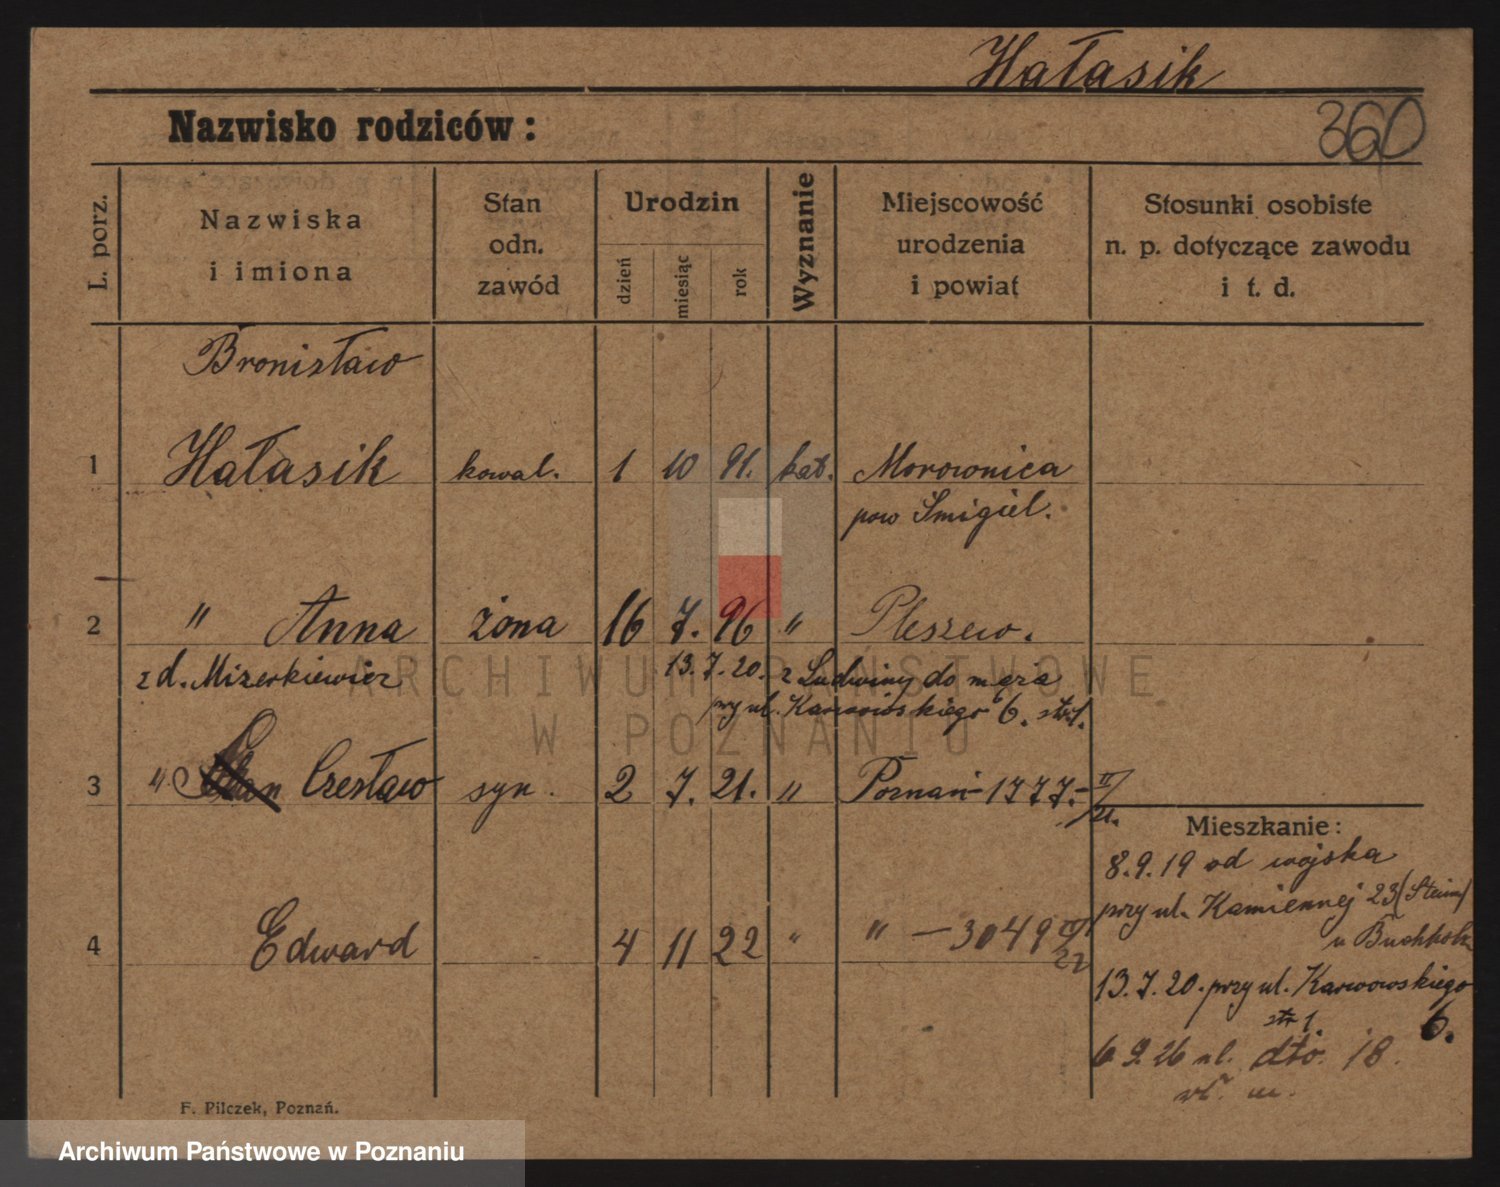 Hałasik
Nazwisko rodziców:
360
L. porz.
Nazwiska
i imiona
Stan
odn.
zawód
Urodzin
dzień
miesiąc
rok
Wyznanie
Miejscowość
urodzenia
i powiat
Stosunki osobiste
n. p. dotyczące zawodu
i t. d.
Bronisław
1 Hałasik kowal. 1 10 91. kat. Morownica
pow Smigiel.
2 " Anna żona 16 7. 96 " Pleszew.
z d. Mizerkiewicz 13.7.20. z Ludwiny do męża
przy ul. Karwowskiego 6. str 1.
3 " Czesław syn. 2 7. 21. " Poznań 1777. II/21.
Mieszkanie:
8.9.19 od wojska
przy ul. Kamiennej 23
u Buchholz
4 Edward 4 11 22 " " — 3049 22
13.7.20. przy ul. Karwowskiego
str 1. 6.
6 9. 26 ul. dto. 18.
F. Pilczek, Poznań.
ARCHIWUM PAŃSTWOWE
W POZNANIU
Archiwum Państwowe w Poznaniu